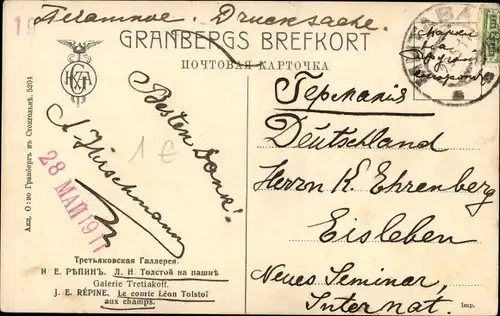 Печатное. Drucksache.
GRANBERGS BREFKORT
ПОЧТОВАЯ КАРТОЧКА
марки
на
другой
стороне
Германія
Deutschland
Herrn K. Ehrenberg
Eisleben
Neues Seminar,
Internat.
Besten Dank!
A. Hirschmann
1 €
28 МАЙ 191
Акц. О:во Гранбергъ въ Стокгольмѣ. 5294
Третьяковская Галлерея.
И Е. РѢПИНЪ. Л. Н. Толстой на пашнѣ
Galerie Tretiakoff.
J. E. RÉPINE. Le comte Léon Tolstoï
aux champs.
Imp.